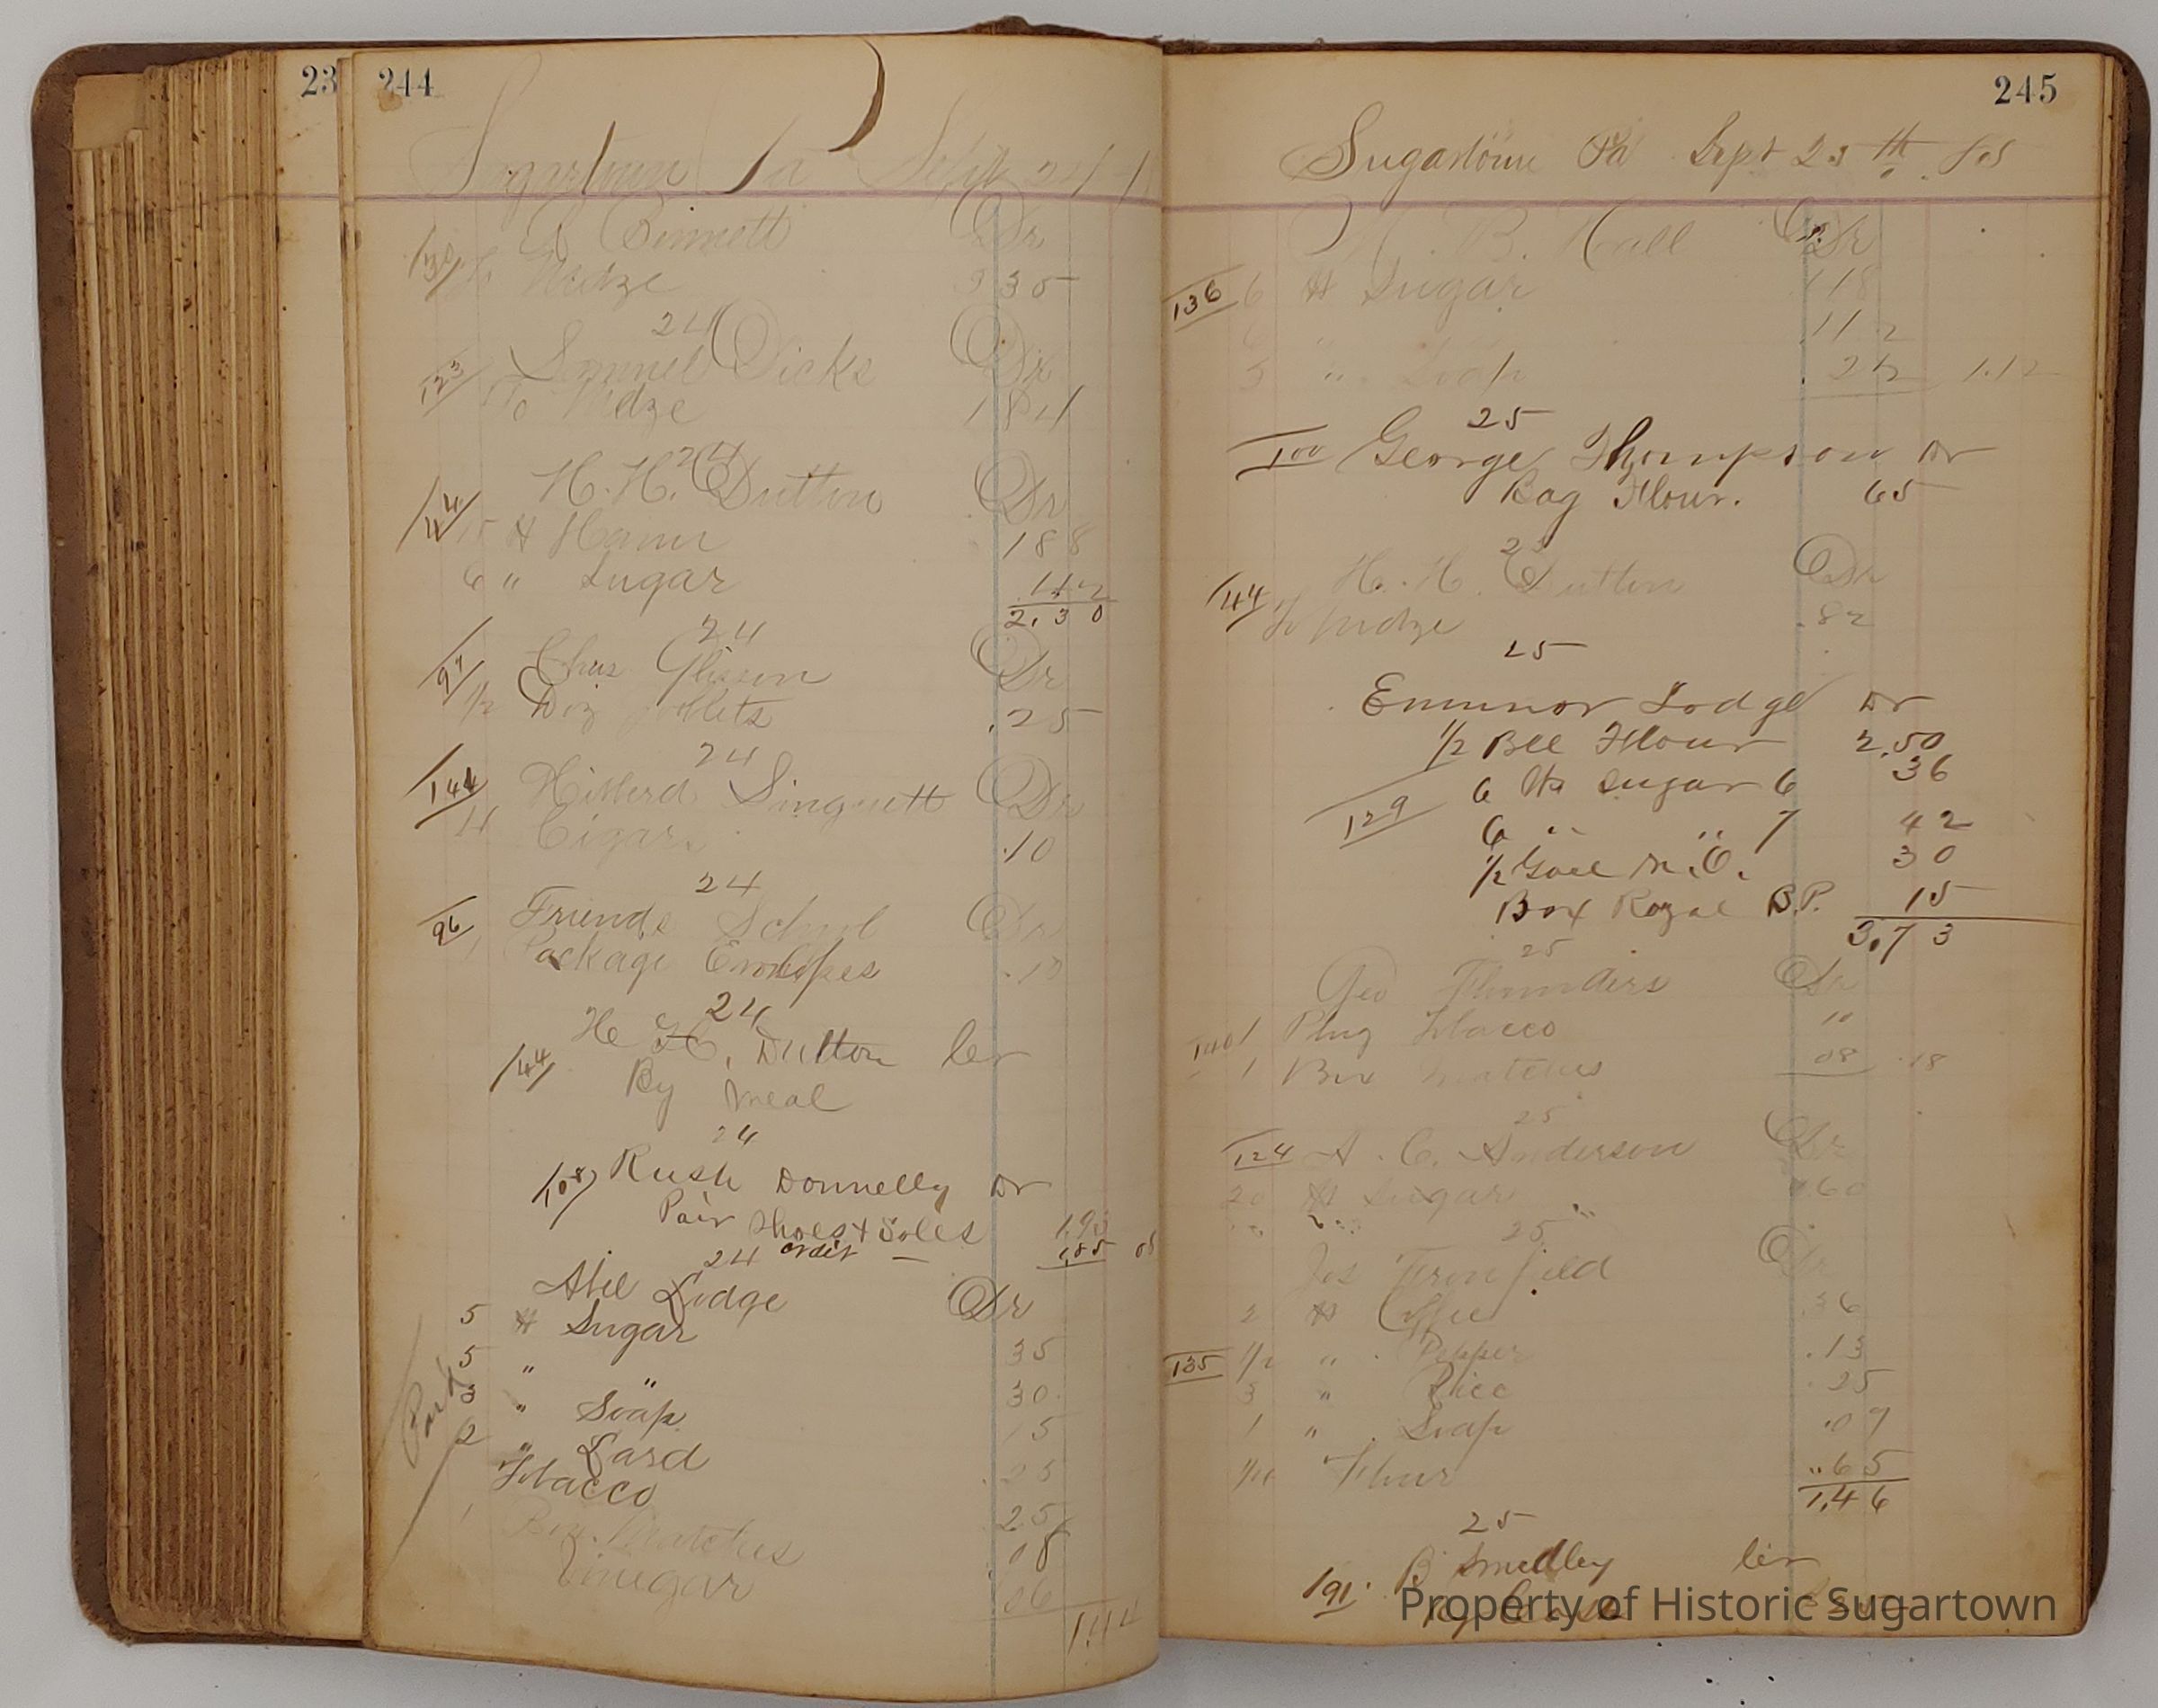 23
244
Sugartown Pa Sept 24
Bennett Dr
Mdze 935
24
Samuel Dicks Dr
123
To Mdze 184
24
H. H. Dutton Dr
144
15 # Ham 188
6 " Sugar .42
2.30
24
97
Chas Glisson Dr
1/2 Doz Goblets .25
24
144
Singuett Dr
4 Cigars .10
24
96
Friends School Dr
1 Package Envelopes .10
24
H. H. Dutton Cr
144
By Meal
24
108 Rush Donnelly Dr
Pair Shoes & Soles 1.93
24 Credit — 1.85 08
Abel Lodge Dr
5 # Sugar 35
5 " " 30
3 " Soap 15
2 " Lard .25
Tobacco 25
1 Box Matches 08
Vinegar 06
1.44
245
Sugartown Pa Sept 25th
M. B. Hall Dr
136 6 # Sugar
6 "
3 " Soap 1.12
25
100 George Thompson Dr
Bag Flour. 65
25
H. H. Dutton Dr
144 To Mdze .82
25
Emmor Lodge Dr
1/2 Bbl Flour 2.50
6 lbs Sugar 6 36
129
6 " " 7 42
1/2 Gall N.O. 30
Box Royal B.P. 15
3.73
25
Geo Flounders Dr
140 1 Plug Tobacco 10
1 Box Matches 08 .18
25
124 A. C. Anderson Dr
20 # Sugar 1.60
25
Jos Dr
2 # Coffee .36
135 1/2 " Pepper .13
3 " Rice .25
1 " Soap .07
Flour .65
1.46
25
191 B Smedley Cr
By Cash
Property of Historic Sugartown